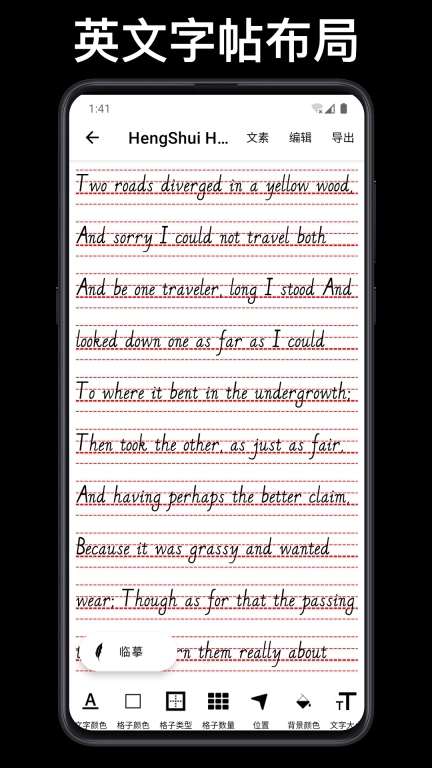 英文字帖布局
1:41
HengShui H... 文素 编辑 导出
Two roads diverged in a yellow wood,
And sorry I could not travel both
And be one traveler, long I stood And
looked down one as far as I could
To where it bent in the undergrowth;
Then took the other, as just as fair,
And having perhaps the better claim,
Because it was grassy and wanted
wear; Though as for that the passing
them really about
临摹
文字颜色 格子颜色 格子类型 格子数量 位置 背景颜色